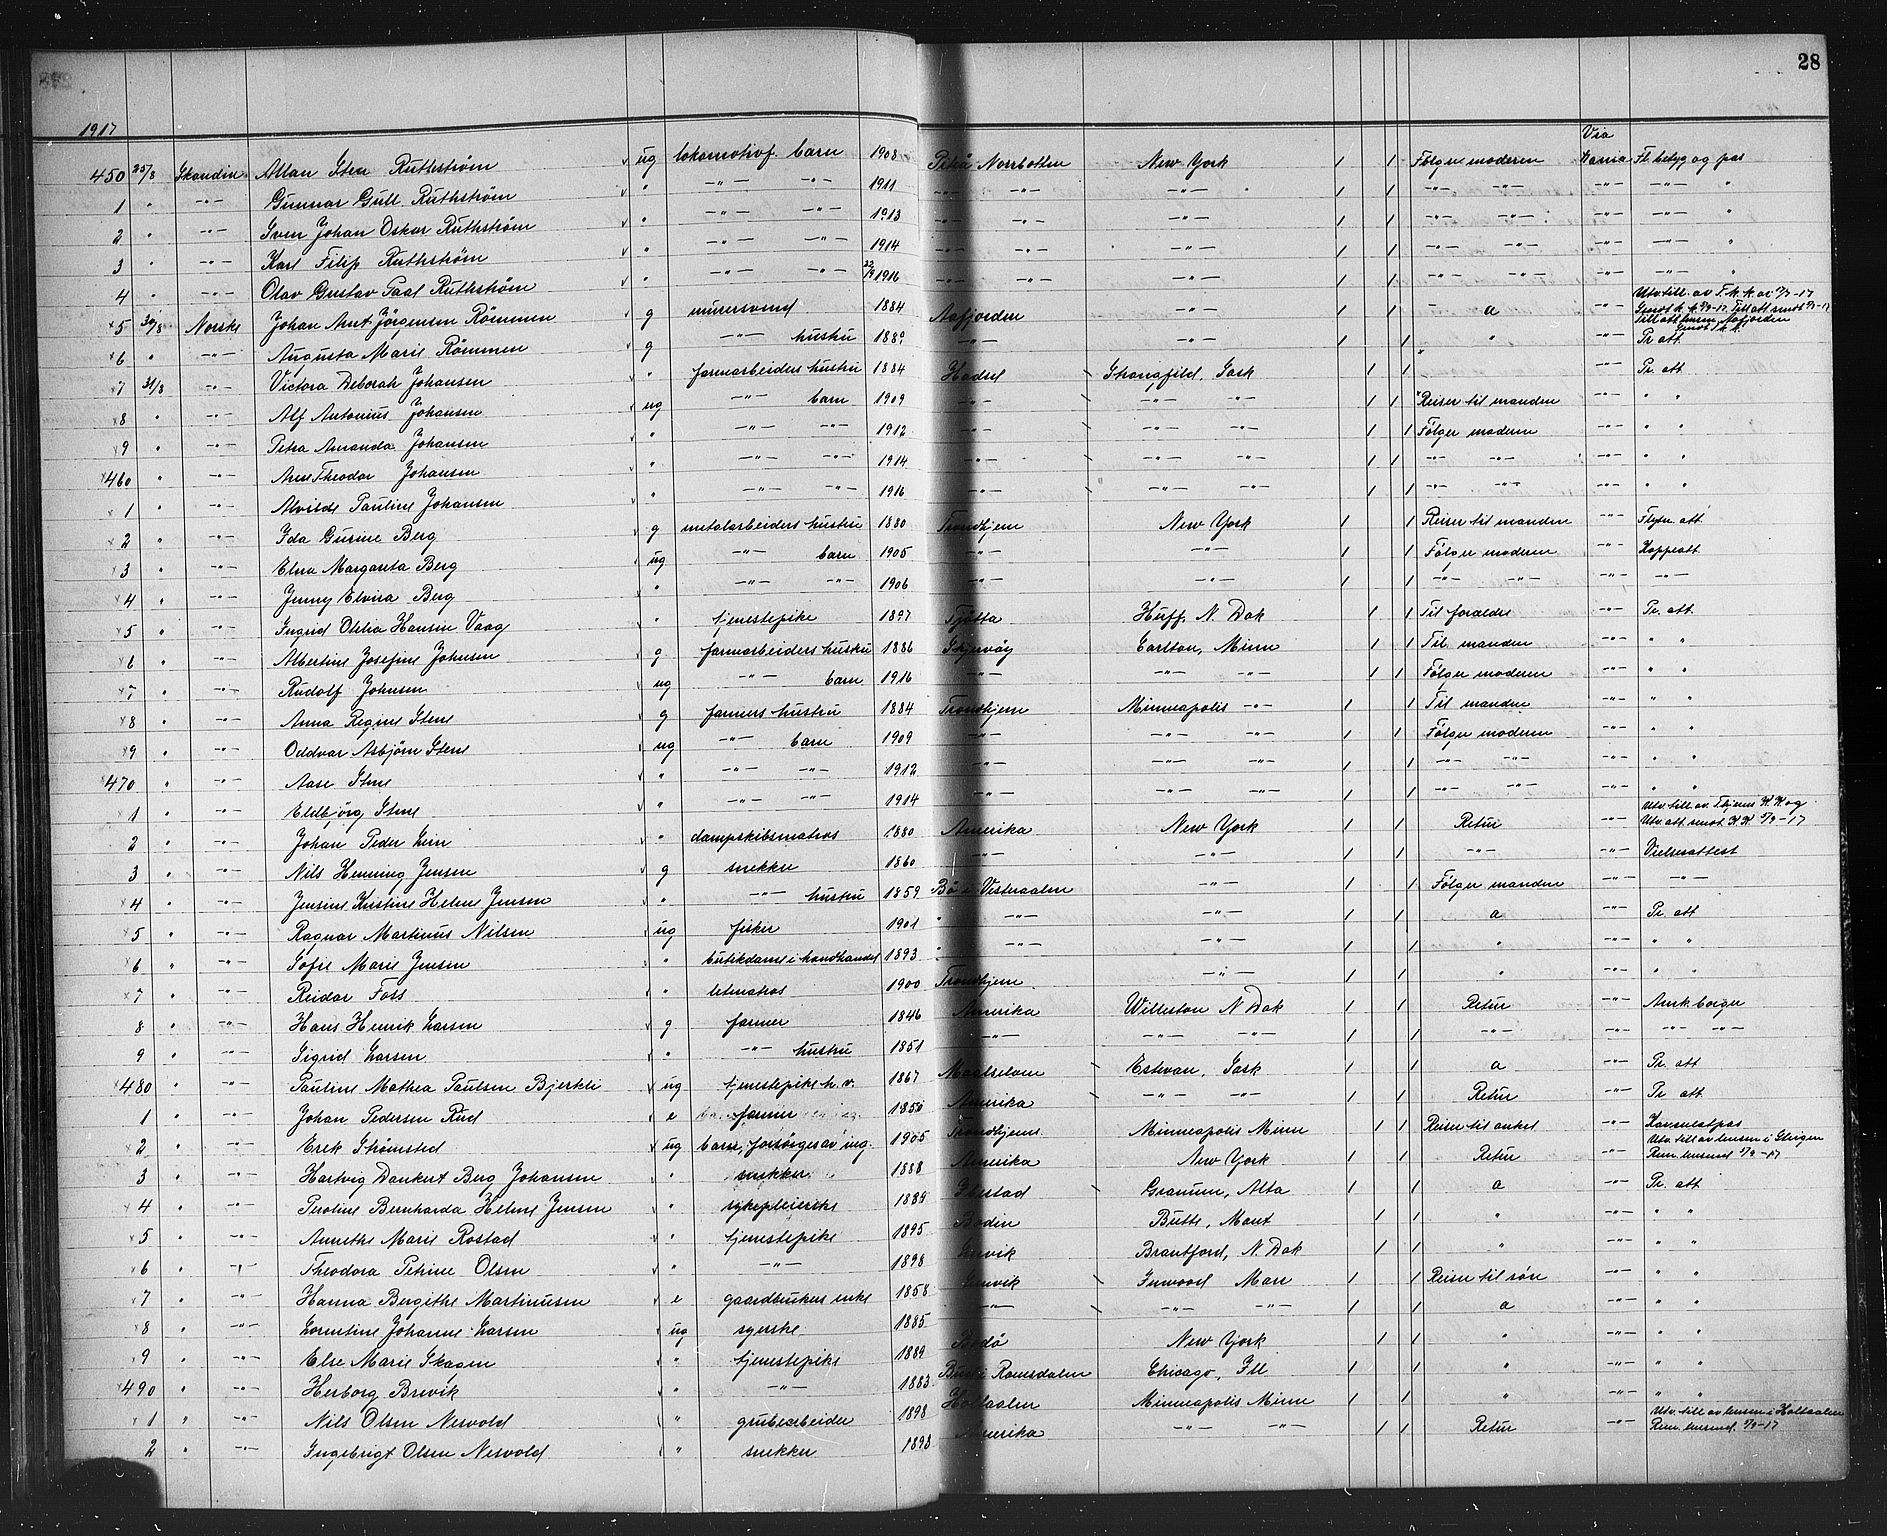 28
1917
Via
450 25/8 Skandin. Allan Sten Ruthström ug lokomotivf. barn 1908 Piteå Norrbotten New York 1 1 Følger moderen Kania Fl. betyg og pas
1 " -"- Gunnar Gull Ruthström " -"- -"- 1911 -"- -"- -"- 1 1 -"- -"- -"- -"- "
2 " -"- Sven Johan Oskar Ruthström " -"- -"- 1913 -"- -"- -"- 1 1 -"- -"- -"- -"- "
3 " -"- Karl Filip Ruthström " -"- -"- 1914 -"- -"- -"- 1 1 -"- -"- -"- -"- "
4 " -"- Olav Gustav Paal Ruthström " -"- -"- 22/9 1916 -"- -"- -"- 1 1 -"- -"- -"- -"- "
5 30/8 Norske Johan Arnt Jörgensen Römmen g murersvend 1884 Aafjorden -"- 1 1 a -"- Utv. till. av T. K. K. av 7/7-17
Till att lensm. Aafjorden
6 " -"- Augusta Marie Römmen g -"- hustru 1889 -"- 1 1 " -"- Pr att.
7 31/8 -"- Victora Deborah Johansen " farmarbeiders hustru 1884 Hadsel Sask 1 1 -"- Pr. att
8 " -"- Alf Antonius Johansen ug -"- barn 1909 -"- -"- -"- 1 1 Reiser til manden -"- " "
9 " -"- Petra Amanda Johansen " -"- -"- 1912 -"- -"- -"- 1 1 Følger moderen -"- " "
460 " -"- Arne Theodor Johansen " -"- -"- 1914 -"- -"- -"- 1 1 -"- -"- -"- " "
1 " -"- Alvilde Pauline Johansen " -"- -"- 1916 -"- -"- -"- 1 1 -"- -"- -"- " "
2 " -"- Ida Gurine Berg g metalarbeiders hustru 1880 Trondhjem New York 1 1 Reiser til manden -"- Flytn. att
3 " -"- Elna Margareta Berg ug -"- barn 1905 -"- -"- 1 1 Følger moderen -"- Koppeatt
4 " -"- Jenny Elvira Berg " -"- -"- 1906 -"- -"- 1 1 -"- -"- -"- -"-
5 " -"- Ingrid Otelia Hansine Vaag " tjenestepike 1897 Tjötta Huff, N. Dak 1 1 Til forældre -"- Pr. att
6 " -"- Albertine Josefine Johnsen g farmarbeiders hustru 1886 Skjervöy Carlton, Minn 1 1 Til manden -"- " "
7 " -"- Rudolf Johnsen ug -"- barn 1916 -"- -"- -"- 1 1 Følger moderen -"- " "
8 " -"- Anna Regine Stene g farmers hustru 1884 Trondhjem Minneapolis -"- 1 1 Til manden -"- " "
9 " -"- Oddvar Asbjörn Stene ug -"- barn 1909 -"- -"- -"- 1 1 Følger moderen -"- " "
470 " -"- Aase Stene " -"- -"- 1912 -"- -"- -"- 1 1 -"- -"- -"- " "
1 " -"- Eldbjörg Stene " -"- -"- 1914 -"- -"- -"- 1 1 -"- -"- -"- " "
2 " -"- Johan Peder Lein " dampskibsmatros 1880 Amerika New York 1 1 Retur -"- Utv. till. av Thjems K. K. og
Utv. att. sendt K. K. 5/9-17
3 " -"- Nils Henning Jensen g snekker 1860 -"- -"- 1 1 -"- -"- Vielsesattest
4 " -"- Jensine Kristine Helene Jensen " -"- hustru 1859 Bö i Vesteraalen -"- 1 1 Følger manden -"- -"-
5 " -"- Ragnar Martinus Nilsen ug fisker 1901 " -"- -"- 1 1 a -"- Pr. att
6 " -"- Sofie Marie Jensen " butikdame i handhandel 1893 " -"- -"- 1 1 " -"- " "
7 " -"- Reidar Foss " letmatros 1900 Trondhjem -"- 1 1 " -"- " "
8 " -"- Hans Henrik Larsen g farmer 1846 Amerika Williston N Dak 1 1 Retur -"- Amk. borger
9 " -"- Sigrid Larsen " -"- hustru 1851 -"- -"- -"- 1 1 " -"- -"- -"-
480 " -"- Pauline Mathea Paulsen Bjerkli ug tjenestepike h. v. 1867 Maalselven Estevan, Sask 1 1 a -"- Pr. att
1 " -"- Johan Pedersen Rud e farmer 1850 Amerika -"- -"- 1 1 Retur -"- Pr att
2 " -"- Erik Strömsted ug barn, forsörges av ing. 1905 Trondhjem Minneapolis Minn 1 1 Reiser til onkel -"- Konsulatpas
3 " -"- Hartvig Dankert Berg Johansen " snekker 1888 Amerika New York 1 1 Retur -"- Utv. till av lensm i
Rem. lensmd. 5/9-17
4 " -"- Peroline Bernharda Helene Jensen " sykepleierske 1889 Ibestad Granum, Alta 1 1 a -"- Pr. att
5 " -"- Annethe Marie Rostad " tjenestepike 1895 Bodin Butte, Mont 1 1 " -"- " "
6 " -"- Theodora Petrine Olsen " -"- 1898 Brantford, N. Dak 1 1 " -"- " "
7 " -"- Hanna Bergithe Martinusen e gaardbrukers enke 1858 Inwood Man 1 1 Reiser til søn -"- " "
8 " -"- Lorentine Johanne Larsen ug syerske 1885 -"- -"- -"- 1 1 a -"- " "
9 " -"- Else Marie Skagen " tjenestepike 1889 Bodö New York 1 1 " -"- " "
490 " -"- Herborg Brevik " -"- 1883 Romsdalen Chicago, Ill 1 1 " -"- " "
1 " -"- Nils Olsen Nesvold " grubearbeider 1898 Holtaalen Minneapolis Minn 1 1 " -"- " "
2 " -"- Ingebrigt Olsen Nesvold " snekker 1898 Amerika -"- -"- 1 1 Retur -"- Utv. till av lensm i Holtaalen
Rem. lensmd. 5/9-17